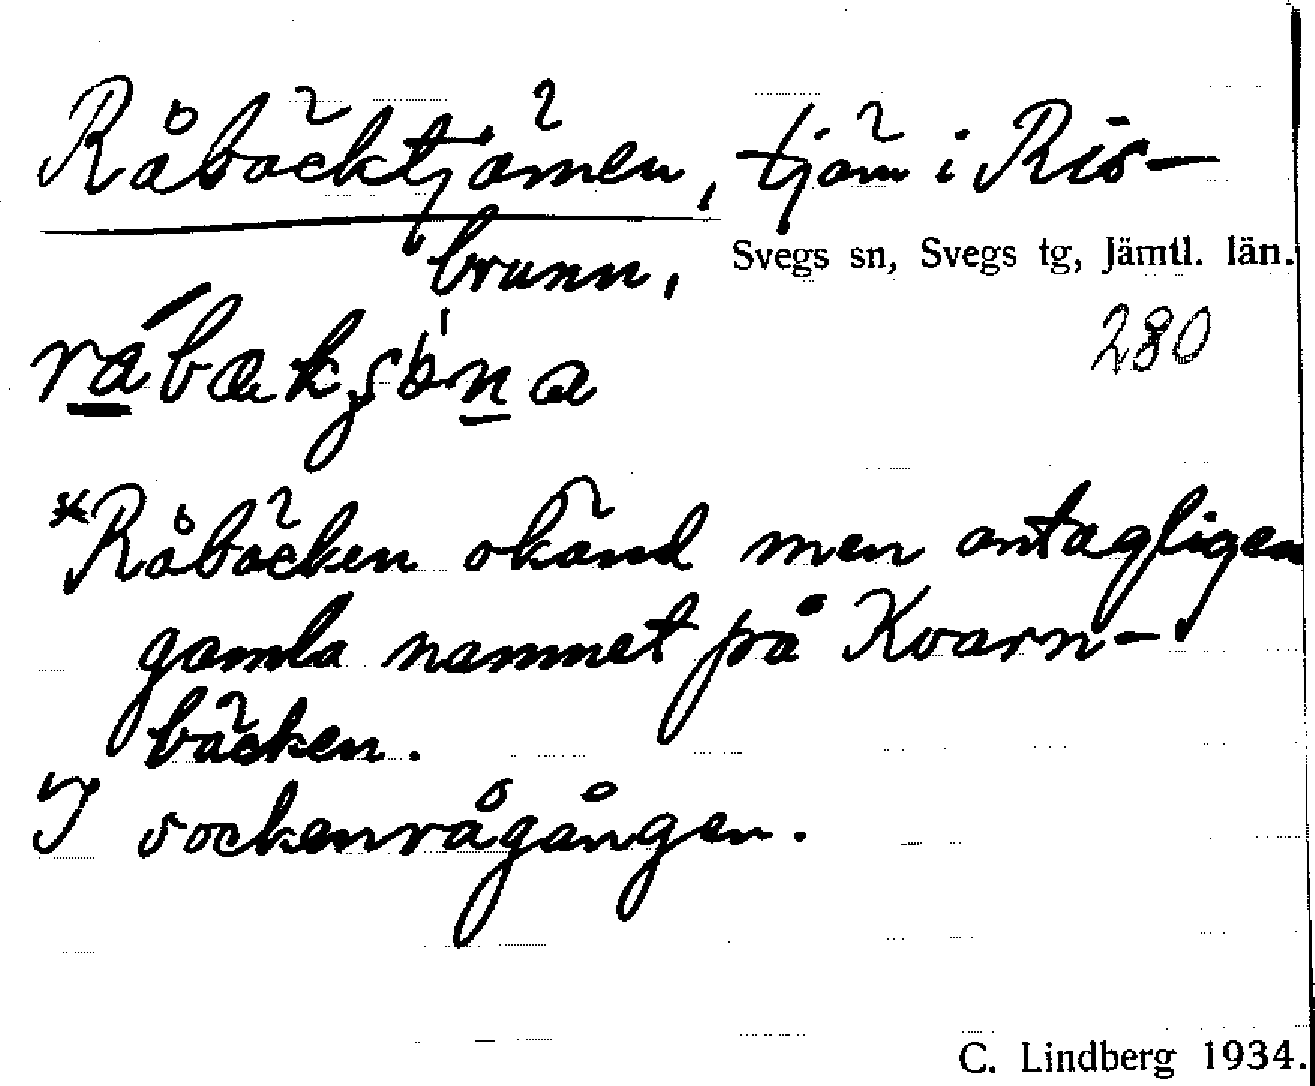 Råbäcktjärnen, tjärn i Ris-
brunn,
Svegs sn, Svegs tg, Jämtl. län.
280
*Råbäcken okänd men antagligen
gamla namnet på Kvarn-
bäcken.
I sockenrågången.
C. Lindberg 1934.